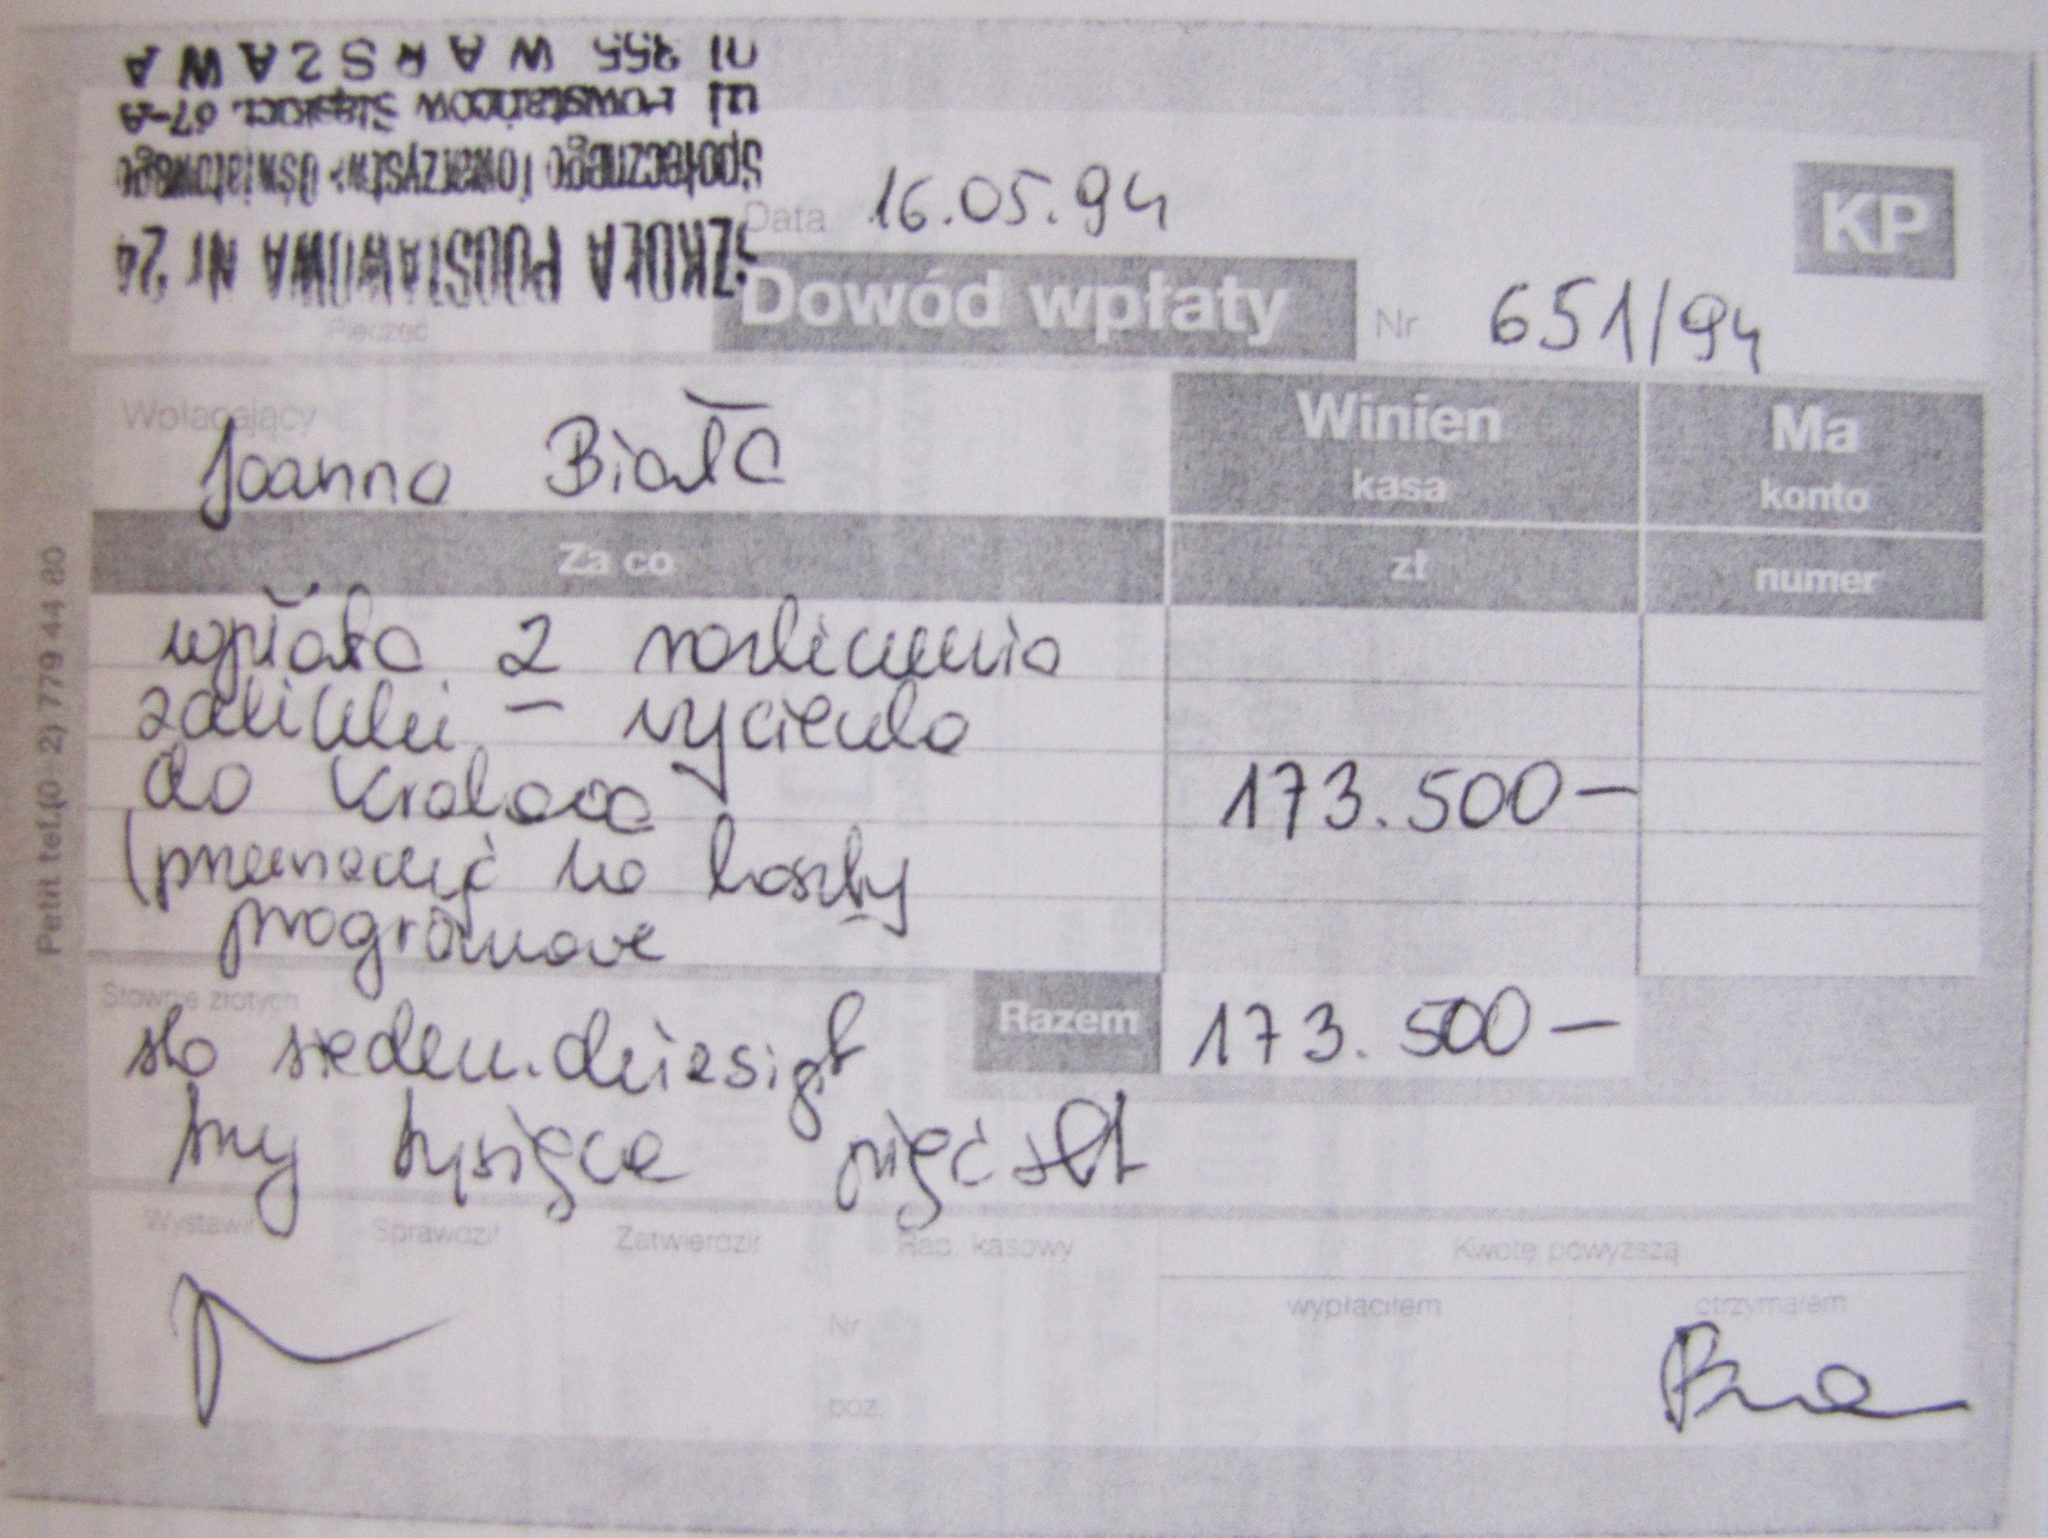 SZKOŁA PODSTAWOWA Nr 24
Społecznego Towarzystwa Oświatowego
ul Powstańców Śląskich 67-a
01 355 WARSZAWA
Pieczęć
Data 16.05.94
KP
Dowód wpłaty Nr 651/94
Wpłacający
Joanna Biała
Winien
kasa
Ma
konto
Za co
zł
numer
wpłata z rozliczenia
zaliczki – wycieczka
do Krakowa
173.500–
(przeznaczyć na koszty
programowe
Słownie złotych
Razem
173.500–
sto siedemdziesiąt
trzy tysiące pięćset
Wystawił
Sprawdził
Zatwierdził
Rap. kasowy
Kwotę powyższą
wypłaciłem
otrzymałem
Nr
poz.
Petit tel.(0-2) 779 44 80